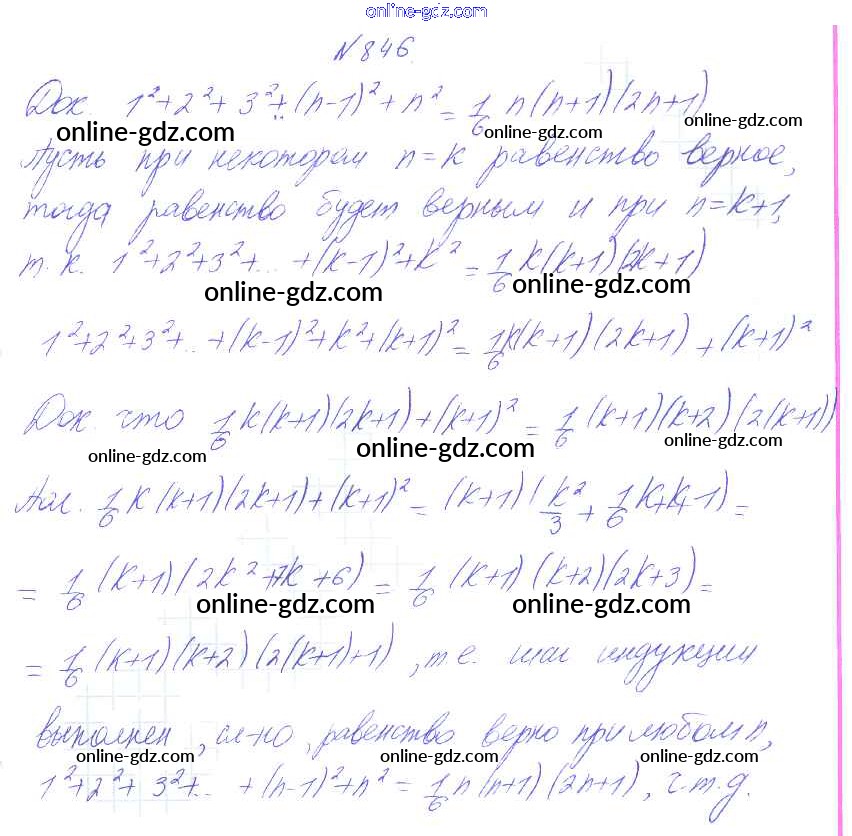 online-gdz.com
N 846.
Док. 1²+2²+3²+...(n-1)²+n² = 1/6 n(n+1)(2n+1)
online-gdz.com online-gdz.com online-gdz.com
Пусть при некотором n=k равенство верное,
тогда равенство будет верным и при n=k+1,
т.к. 1²+2²+3²+...+(k-1)²+k² = 1/6 k(k+1)(2k+1)
online-gdz.com online-gdz.com
1²+2²+3²+...+(k-1)²+k²+(k+1)² = 1/6 k(k+1)(2k+1)+(k+1)²
Док. что 1/6 k(k+1)(2k+1)+(k+1)² = 1/6 (k+1)(k+2)(2(k+1))
online-gdz.com online-gdz.com online-gdz.com
1/6 k(k+1)(2k+1)+(k+1)² = (k+1)(k²/3 + 1/6 k+k+1) =
= 1/6 (k+1)(2k²+7k+6) = 1/6 (k+1)(k+2)(2k+3) =
online-gdz.com online-gdz.com
= 1/6 (k+1)(k+2)(2(k+1)+1), т.е. шаг индукции
выполнен, сл-но, равенство верно при любом n,
online-gdz.com online-gdz.com online-gdz.com
1²+2²+3²+...+(n-1)²+n² = 1/6 n(n+1)(2n+1), ч.т.д.